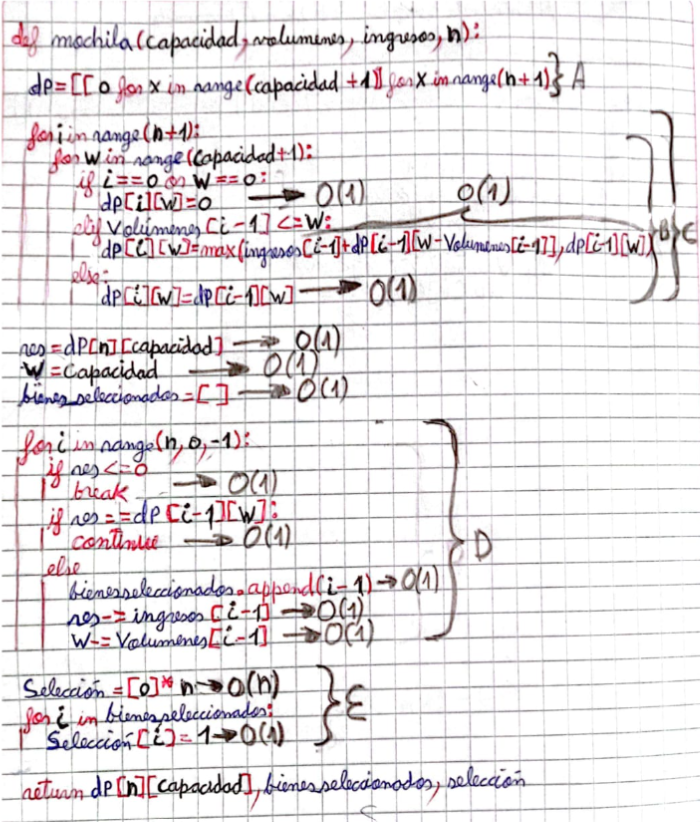 def mochila(capacidad, volumenes, ingresos, n):
dp=[[0 for x in range(capacidad +1)] for x in range(n+1)} A
for i in range(n+1):
for w in range(capacidad+1):
if i==0 or w==0:
dp[i][w]=0 → O(1) O(1)
elif Volúmenes[i-1] <=w:
dp[i][w]=max(ingresos[i-1]+dp[i-1][w-Volumenes[i-1]],dp[i-1][w]) B C
else:
dp[i][w]=dp[i-1][w] → O(1)
res=dp[n][capacidad] → O(1)
w=capacidad → O(1)
bienes seleccionados=[ ] → O(1)
for i in range(n,0,-1):
if res<=0
break → O(1)
if res==dp[i-1][w]:
continue → O(1) D
else
bienesseleccionados.append(i-1) → O(1)
res-=ingresos[i-1] → O(1)
w-=Volumenes[i-1] → O(1)
Selección=[0]*n → O(n)
for i in bienesseleccionados: E
Selección[i]=1 → O(1)
return dp[n][capacidad], bienesseleccionados, selección